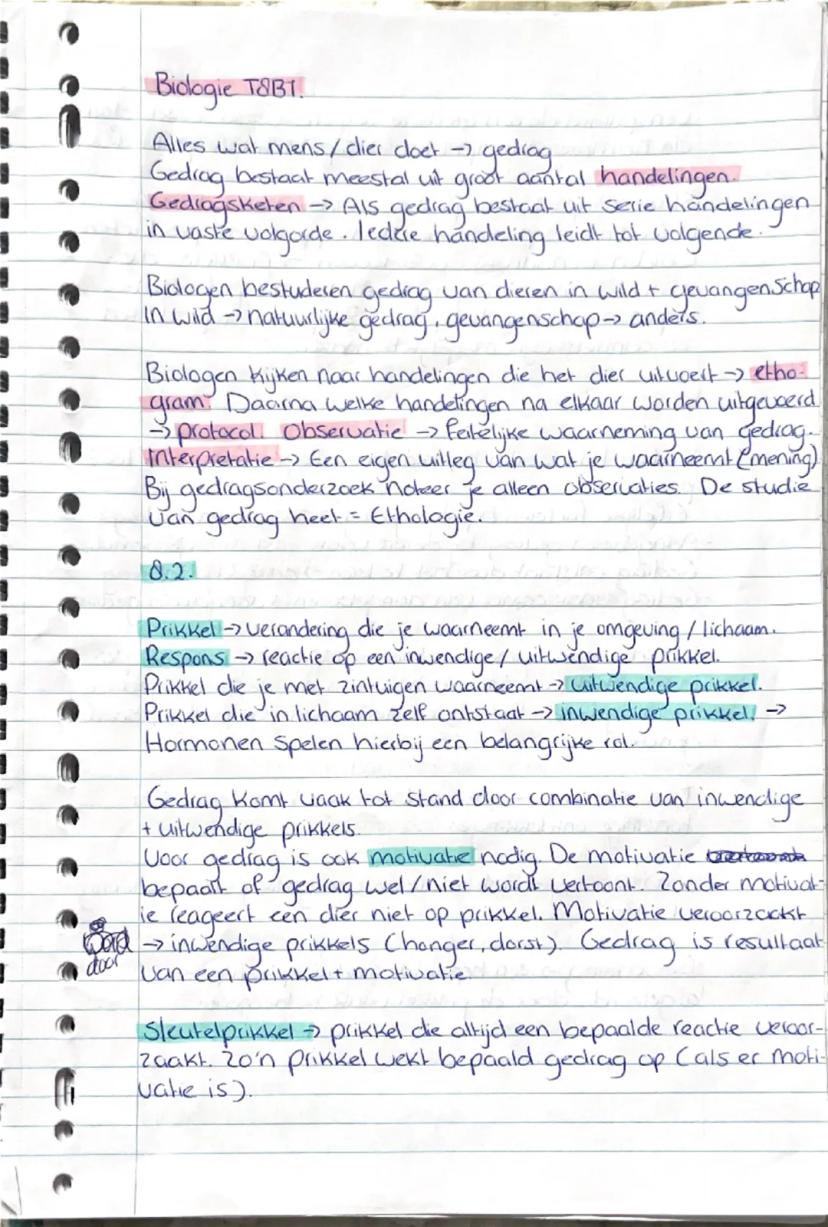 Biologie T8B1.
Alles wat mens/dier doet → gedrag
Gedrag bestaat meestal uit groot aantal handelingen.
Gedragsketen → Als gedrag bestaat uit serie handelingen
in vaste volgorde. Iedere handeling leidt tot volgende.
Biologen bestuderen gedrag van dieren in wild + gevangenschap
In wild → natuurlijke gedrag, gevangenschap → anders.
Biologen kijken naar handelingen die het dier uitvoert → etho-
gram. Daarna welke handelingen na elkaar worden uitgevoerd
→ protocol. Observatie → feitelijke waarneming van gedrag.
Interpretatie → Een eigen uitleg van wat je waarneemt (mening)
Bij gedragsonderzoek noteer je alleen observaties. De studie
van gedrag heet = Ethologie.
8.2.
Prikkel → verandering die je waarneemt in je omgeving/lichaam.
Respons → reactie op een inwendige/uitwendige prikkel.
Prikkel die je met zintuigen waarneemt → uitwendige prikkel.
Prikkel die in lichaam zelf ontstaat → inwendige prikkel. →
Hormonen spelen hierbij een belangrijke rol.
Gedrag komt vaak tot stand door combinatie van inwendige
+ uitwendige prikkels.
Voor gedrag is ook motivatie nodig. De motivatie
bepaalt of gedrag wel/niet wordt vertoont. Zonder motivat-
ie reageert een dier niet op prikkel. Motivatie veroorzaakt
word door → inwendige prikkels (honger, dorst). Gedrag is resultaat
van een prikkel + motivatie.
Sleutelprikkel → prikkel die altijd een bepaalde reactie veroor-
zaakt. Zo'n prikkel wekt bepaald gedrag op (als er moti-
vatie is).